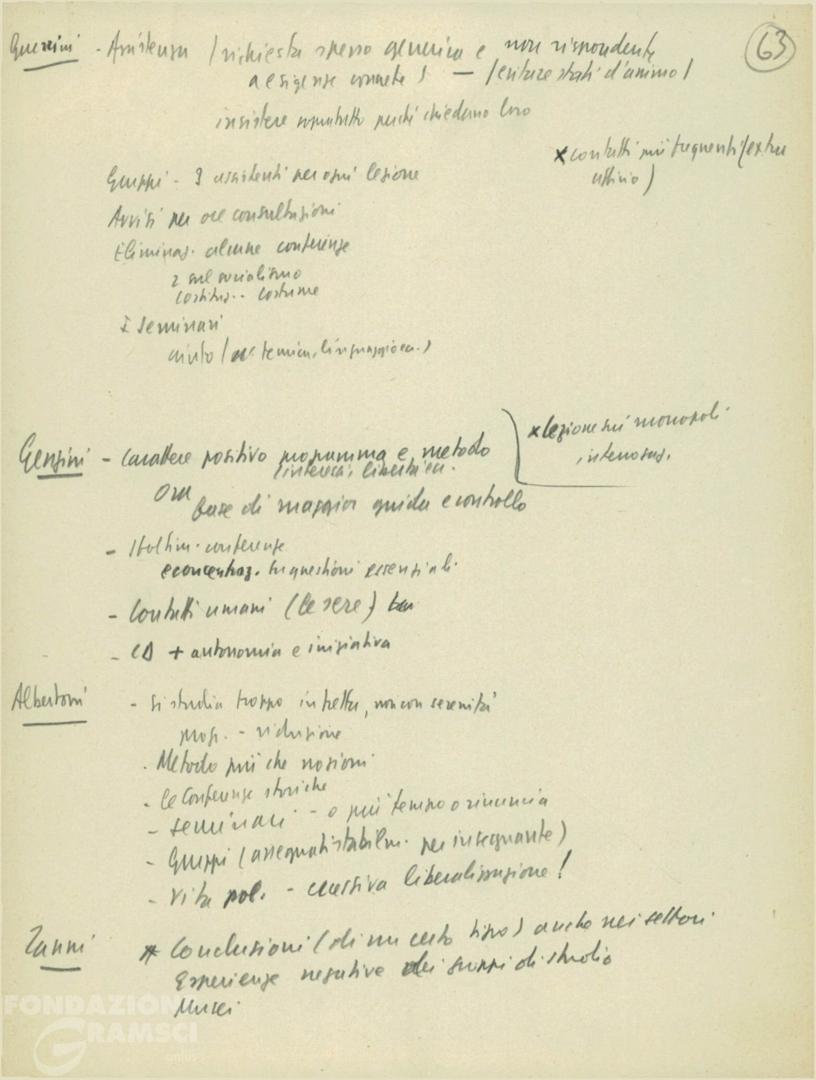 63
Guerrini - Assistenza (richiesta spesso generica e non rispondente
a esigenze concrete) - (evitare stati d'animo)
insistere soprattutto perché chiedano loro
x contatti più frequenti (extra
ufficio)
Gruppi - 3 assistenti per ogni lezione
Avvisi per ore consultazioni
Eliminaz. alcune conferenze
2 sul socialismo
Costituz. - costume
I Seminari
aiuto (
Genzini - Carattere positivo programma e metodo
x lezione sui monopoli
Ora base di maggior guida e controllo
- conferenze
e concentraz. su questioni essenziali.
- Contatti umani (le sere)
- CD + autonomia e iniziativa
Albertoni - Si studia troppo in fretta, non con serenità
prog. - riduzione
- Metodo più che nozioni
- le Conferenze storiche
- Seminari - o più tempo o rinuncia
- Gruppi (assegnati stabilm. per insegnante)
- Vita pol. - eccessiva liberalizzazione!
Zanni x Conclusioni (di un certo tipo) anche nei settori
Esperienze negative dei gruppi di studio
Musei
FONDAZIONE
GRAMSCI
onlus